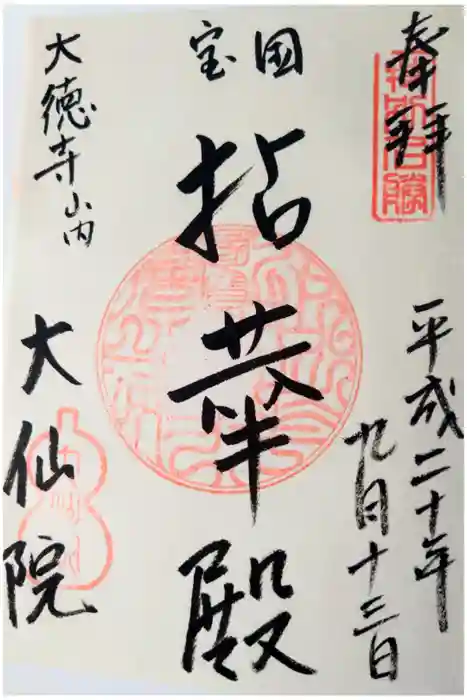 奉拝
特別名勝
平成二十年
九月十三日
国宝
拈華殿
大徳寺山内
大仙院